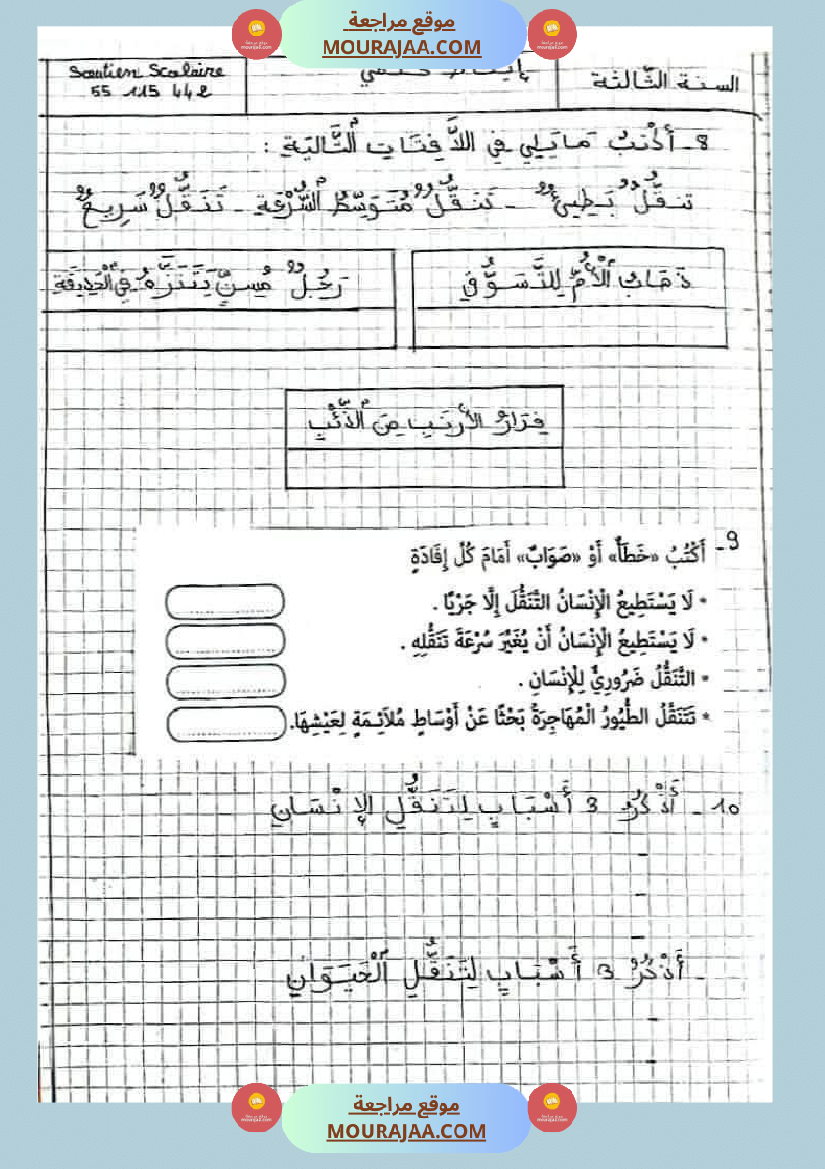 موقع مراجعة
MOURAJAA.COM
Soutien Scolaire
55 115 442
السنة الثّالثة
8 - أَكْتُبُ مَا يَلِي فِي اللاَّفِتَاتِ التَّالِيَةِ :
تنقُّلٌ بَطِيءٌ - تَنَقُّلٌ مُتَوَسِّطُ السُّرْعَةِ - تَنَقُّلٌ سَرِيعٌ
ذَهَابُ الْأُمِّ لِلتَّسَوُّقِ
رَجُلٌ مُسِنٌّ يَتَنَزَّهُ فِي الْحَدِيقَةِ
فِرَارُ الأَرْنَبِ مِنَ الذِّئْبِ
9 - أَكْتُبُ «خَطَأٌ» أَوْ «صَوَابٌ» أَمَامَ كُلِّ إِفَادَةٍ
• لَا يَسْتَطِيعُ الْإِنْسَانُ التَّنَقُّلَ إِلَّا جَرْيًا .
• لَا يَسْتَطِيعُ الْإِنْسَانُ أَنْ يُغَيِّرَ سُرْعَةَ تَنَقُّلِهِ .
• التَّنَقُّلُ ضَرُورِيٌّ لِلْإِنْسَانِ .
• تَتَنَقَّلُ الطُّيُورُ الْمُهَاجِرَةُ بَحْثًا عَنْ أَوْسَاطٍ مُلاَئِمَةٍ لِعَيْشِهَا.
10 - أَذْكُرُ 3 أَسْبَابٍ لِتَنَقُّلِ الإِنْسَانِ
-
-
- أَذْكُرُ 3 أَسْبَابٍ لِتَنَقُّلِ الْحَيَوَانِ
-
-
موقع مراجعة
MOURAJAA.COM